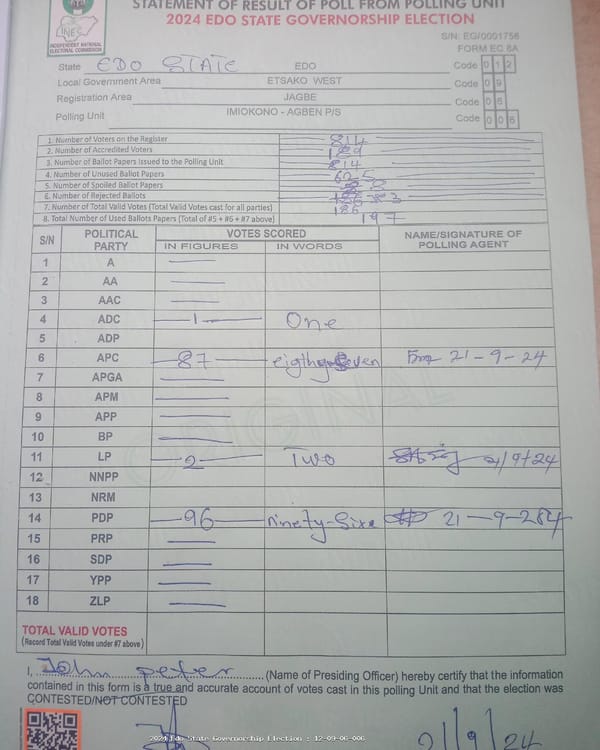 STATEMENT OF RESULT OF POLL FROM POLLING UNIT
2024 EDO STATE GOVERNORSHIP ELECTION
INEC
INDEPENDENT NATIONAL ELECTORAL COMMISSION
S/N: EG/0001756
FORM EC 8A
State EDO STATE EDO Code 0 1 2
Local Government Area ETSAKO WEST Code 0 9
Registration Area JAGBE Code 0 6
Polling Unit IMIOKONO - AGBEN P/S Code 0 0 6
1. Number of Voters on the Register 814
2. Number of Accredited Voters 189
3. Number of Ballot Papers Issued to the Polling Unit 814
4. Number of Unused Ballot Papers 625
5. Number of Spoiled Ballot Papers
6. Number of Rejected Ballots
7. Number of Total Valid Votes (Total Valid Votes cast for all parties) 186
8. Total Number of Used Ballots Papers (Total of #5 + #6 + #7 above) 197
S/N POLITICAL PARTY VOTES SCORED NAME/SIGNATURE OF POLLING AGENT
IN FIGURES IN WORDS
1 A
2 AA
3 AAC
4 ADC 1 One
5 ADP
6 APC 87 eigthy-Seven 21-9-24
7 APGA
8 APM
9 APP
10 BP
11 LP 2 Two 21/9/24
12 NNPP
13 NRM
14 PDP 96 ninety-Sixe 21-9-284
15 PRP
16 SDP
17 YPP
18 ZLP
ORIGINAL
TOTAL VALID VOTES
(Record Total Valid Votes under #7 above)
I, John peter (Name of Presiding Officer) hereby certify that the information
contained in this form is a true and accurate account of votes cast in this polling Unit and that the election was
CONTESTED/NOT CONTESTED
2024 Edo State Governorship Election : 12-09-06-006
21/9/24